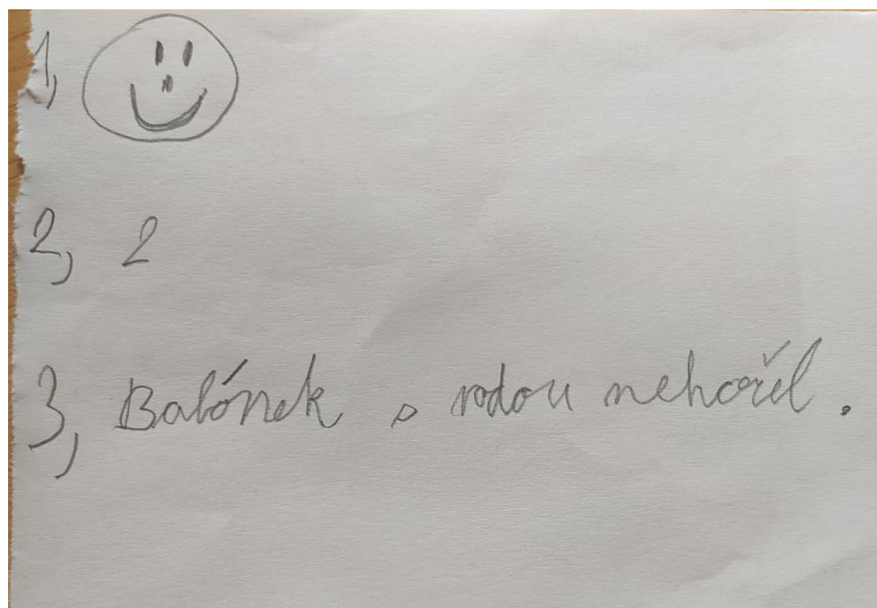 1,
2, 2
3, Balónek s vodou nehořel.